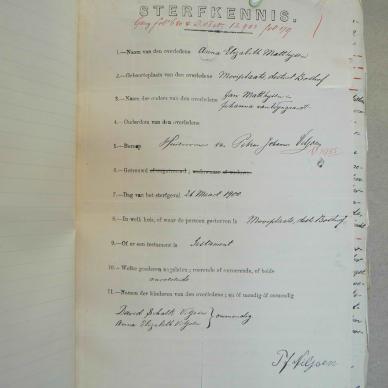 STERFKENNIS.
1.—Naam van den overledene Anna Elizabeth Matthysen
2.—Geboorteplaats van den overledene Mooiplaats, district Boshof
3.—Namen der ouders van den overledene Jan Matthysen en
Johanna
4.—Ouderdom van den overledene
5.—Beroep Huisvrouw van Petrus Johannes Viljoen
6.—Getrouwd ongetrouwd; weduwnaar of weduwe
7.—Dag van het sterfgeval 26 Maart 1900
8.—In welk huis, of waar de persoon gestorven is Mooiplaats, distr. Boshof
9.—Of er een testament is Testament
10.—Welke goederen nagelaten; roerende of onroerende, of beide
onroerende
11.—Namen der kinderen van den overledene; en òf mondig òf onmondig
David Schalk Viljoen
Anna Elizabeth Viljoen } onmondig
Viljoen